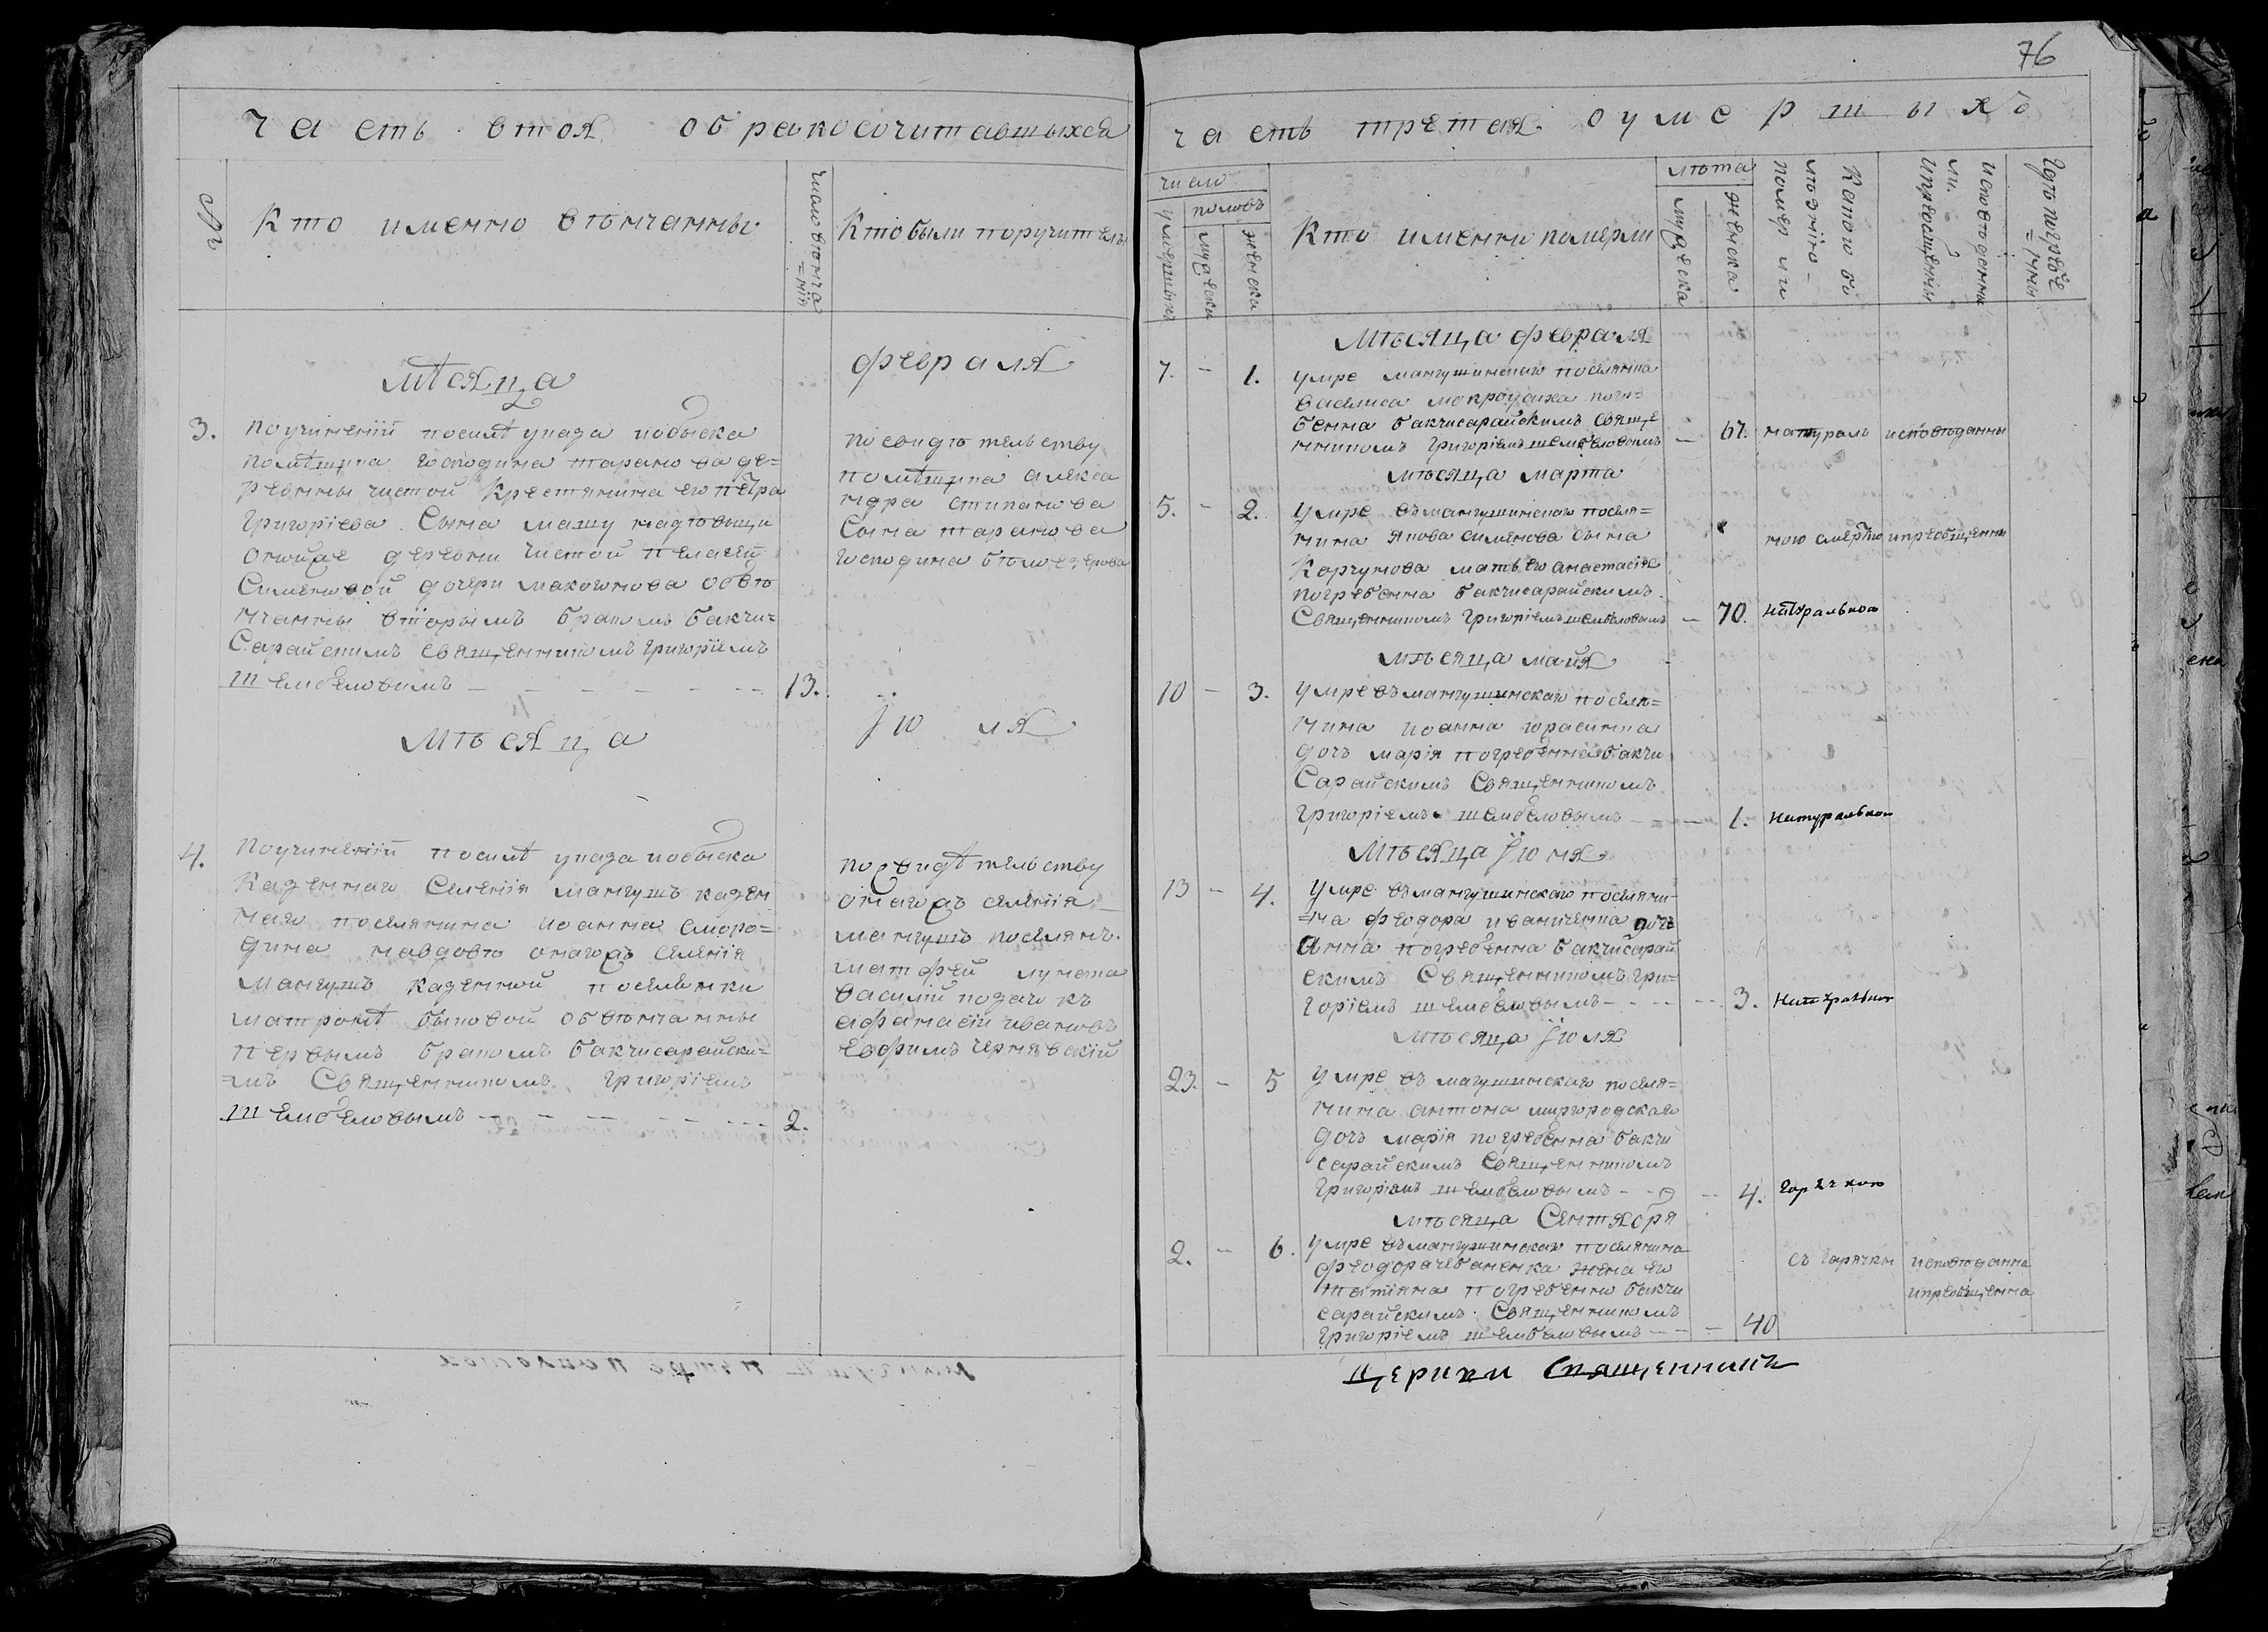 76
часть втоя обракосочитавшыхся
№
Кто именно втънчанны
число втънча
=нія
Кто были поручители
мѣсяца
февраля
3.
По учиненій посилѣ указа и обыска
помѣщика господина таранова де=
ревнны чистой Крестянина его пѣтра
Григорїева Сына машу надтовыци
оной же деревни чистой пелагей
Симѣновой дочери макогонова обвѣ
нчанны вторымъ бракомъ бакчи=
Сарайскимъ священникомъ григоріемъ
шембеловымъ
13.
По свидѣтельству
помѣщика алекса
ндра стипанова
Сына таранова
господина бѣлозерова
Мѣсяца
Јюля
4.
По учиненій посилѣ указа и обыска
Казенного Селенія мангушъ казен
наго поселянина иоанна сморо=
дина навдовѣ онагожъ селенія
мангушъ казенной поселянки
матронѣ быковой обвѣнчанны
первымъ бракомъ бакчисарайски=
=мъ Священникомъ григоріемъ
шембеловымъ
2.
по свидѣтельству
онагожъ селенія
мангушъ поселянъ
матфей лупета
василій
афанасій ивановъ
Ефимъ чернявскій
часть третая о умершыхъ
число
умершыхъ
половъ
мужеска
женска
Кто именно померли
лѣта
мужеска
женска
Какою бо
лѣзнію
померли
исповѣданы
ли
ипріобщены
Гдѣ погребе
=нны
Мѣсяца февраля
7. - 1.
умре мангушинскаго поселянина
василиса мокроусиха погре=
бенна бакчисарайскимъ Свяще
нникомъ григоріемъ шембеловымъ
- 67. натураль исповѣданны
мѣсяца марта
5. - 2.
умре въ мангушинскаго поселя=
нина якова симѣнова сына
Корчунова мать его анастасія
погребенна бакчисарайскимъ
Священникомъ григоріемъ шембеловымъ
ною смертію ипреобщенны
- 70. натуральною
мѣсяца майя
10 - 3.
умре въ мангушинскаго поселя=
нина иоанна
дочъ марія погребенна бакчи
Сарайскимъ Священникомъ
григоріемъ шембеловымъ
- 1. натуральною
Мѣсяца Јюня
13 - 4.
умре въ мангушинскаго поселяни=
=на феодора иваниченка дочъ
анна погребенна бакчисарай
скимъ Священникомъ гри=
горіемъ шембеловымъ
3. натуральною
Мѣсяца Јюля
23. - 5
умре въ магушинскаго поселя=
нина антона миргородскаго
дочъ марія погребенна бакчи
сарайскимъ Священникомъ
григоріемъ шембеловымъ
4. горячкою
мѣсяца Сентября
2. - 6.
умре въ мангушинскаго поселянина
феодора чебаненка жена его
татіяна погребенно бакчи
сарайскимъ Священникомъ
григоріемъ шембеловымъ
съ горячки исповѣданна
ипреобщенна
- 40
церкви священникъ